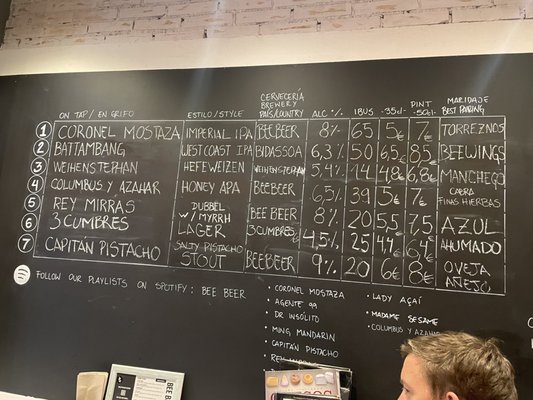 ON TAP / EN GRIFO ESTILO/STYLE CERVECERÍA BREWERY PAÍS/COUNTRY ALC % IBUS -35cl- PINT -50cl- MARIDAJE BEST PAIRING
1 CORONEL MOSTAZA IMPERIAL IPA BEEBEER 8% 65 5€ 7€ TORREZNOS
2 BATTAMBANG WESTCOAST IPA BIDASSOA 6,3% 50 6,5 8,5 BEEWINGS
3 WEIHENSTEPHAN HEFEWEIZEN WEIHENSTEPHAN 5,4% 14 4,8 6,8 MANCHEGO
4 COLUMBUS Y AZAHAR HONEY APA BEEBEER 6,5% 39 5€ 7€ CABRA FINAS HIERBAS
5 REY MIRRAS DUBBEL W/MYRRH BEE BEER 8% 20 5,5 7,5 AZUL
6 3 CUMBRES LAGER 3 CUMBRES 4,5% 25 4,4 6,4 AHUMADO
7 CAPITÁN PISTACHO SALTY PISTACHO STOUT BEEBEER 9% 20 6€ 8€ OVEJA AÑEJO
FOLLOW OUR PLAYLISTS ON SPOTIFY: BEE BEER
• CORONEL MOSTAZA
• AGENTE 99
• DR INSÓLITO
• MING MANDARIN
• CAPITÁN PISTACHO
• LADY AÇAÍ
• MADAME SESAME
• COLUMBUS Y AZAHAR
BEE